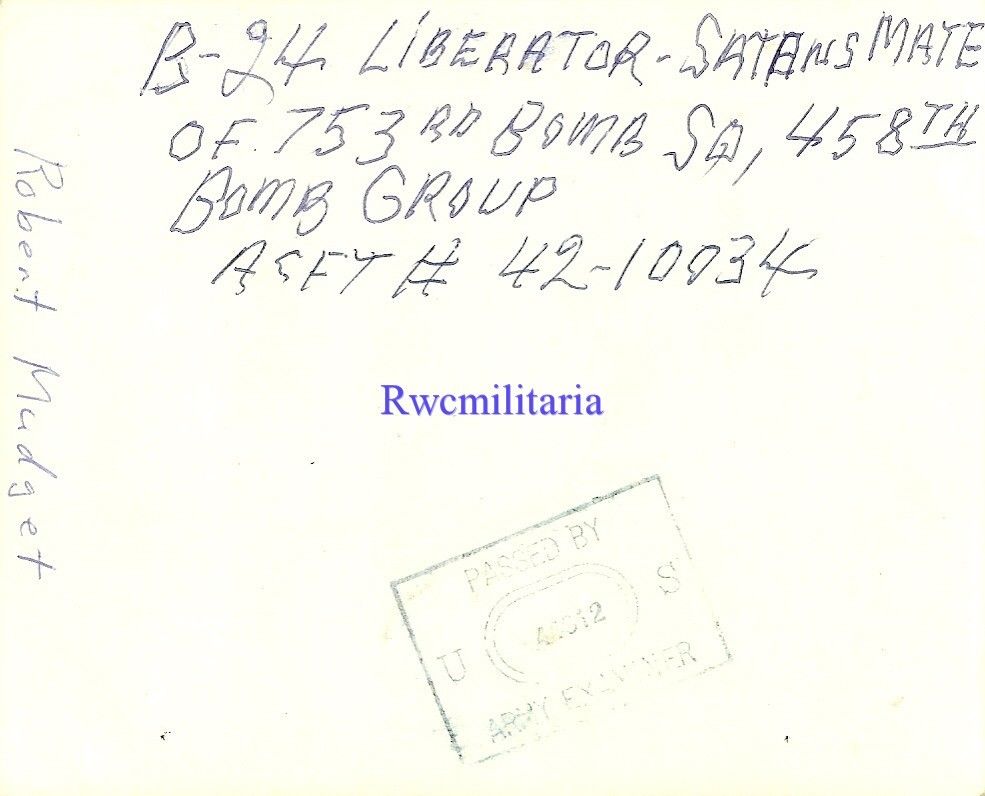 B-24 LIBERATOR-SATANS MATE
OF 753RD BOMB SQ, 458TH
BOMB GROUP
ACFT # 42-10034
Robert Mudget
Rwcmilitaria
PASSED BY
U S
ARMY EXAMINER